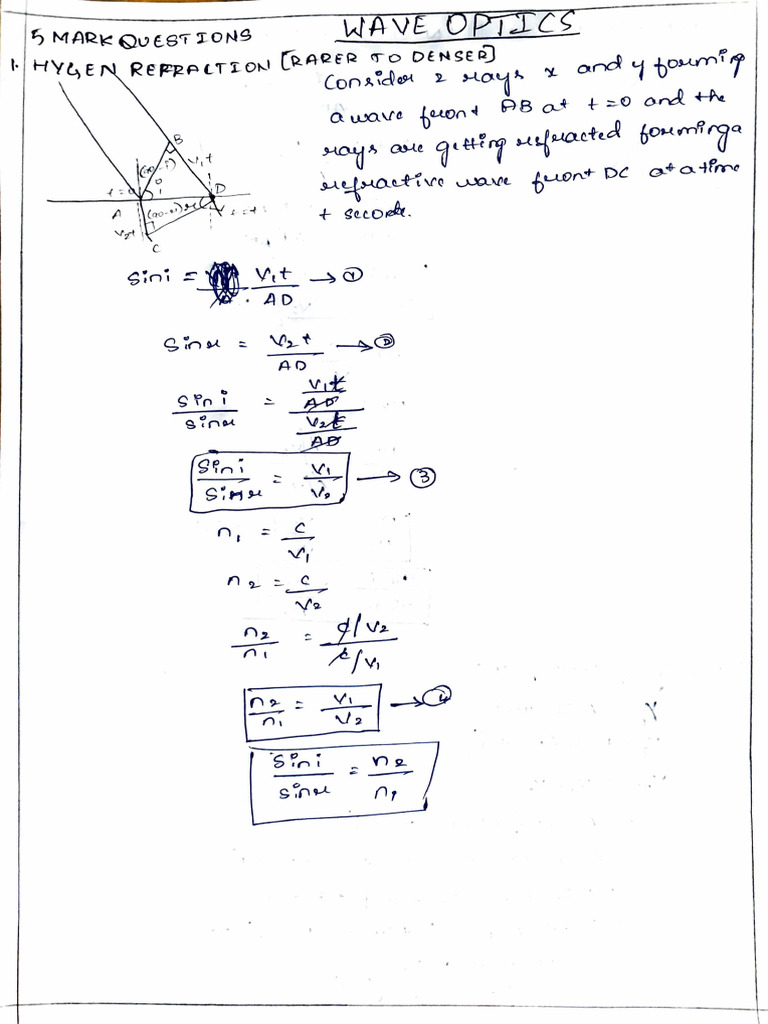 WAVE OPTICS
5 MARK QUESTIONS
1. HYGEN REFRACTION [RARER TO DENSER]
Consider 2 rays x and y forming
a wave front AB at t=0 and the
rays are getting refracted forming a
refractive wave front DC at a time
t seconds.
B
(90-i)
V₁t
t=0
i
D
A
(90-r)
r
t=t
V₂t
C
Sin i = V₁t/AD → ①
Sin r = V₂t/AD → ②
Sin i/sin r = V₁t/AD / V₂t/AD
Sin i/Sin r = V₁/V₂ → ③
n₁ = c/V₁
n₂ = c/V₂
n₂/n₁ = c/V₂ / c/V₁
n₂/n₁ = V₁/V₂ → ④
Sin i/sin r = n₂/n₁